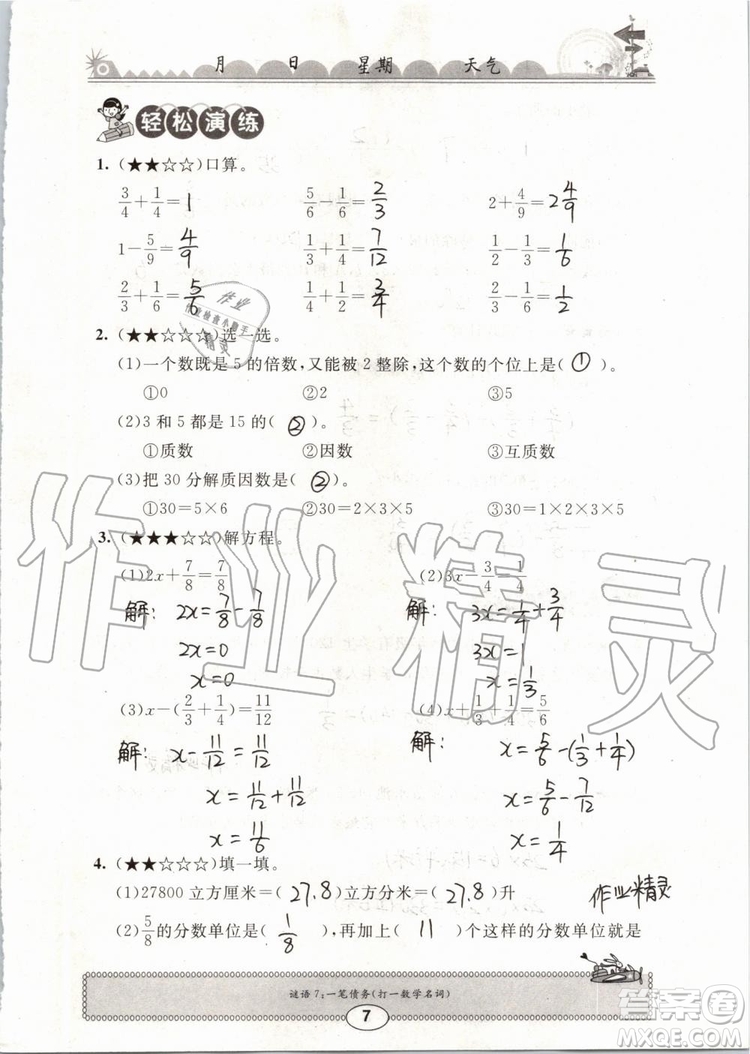 月 日 星期 天气
轻松演练
1. (★★☆☆☆)口算。
3/4+1/4= 1  5/6-1/6= 2/3  2+4/9= 2 4/9
1-5/9= 4/9  1/3+1/4= 7/12  1/2-1/3= 1/6
2/3+1/6= 5/6  1/4+1/2= 3/4  2/3-1/6= 1/2
作业
作业检查小助手
精灵
2. (★★☆☆☆)选一选。
(1)一个数既是5的倍数,又能被2整除,这个数的个位上是( ① )。
①0 ②2 ③5
(2)3和5都是15的( ② )。
①质数 ②因数 ③互质数
(3)把30分解质因数是( ② )。
①30=5×6 ②30=2×3×5 ③30=1×2×3×5
3. (★★★☆☆)解方程。
(1)2x+7/8=7/8  (2)3x-3/4=1/4
解: 2x=7/8-7/8  解: 3x=1/4+3/4
2x=0  3x=1
x=0  x=1/3
(3)x-(2/3+1/4)=11/12  (4)x+1/3+1/4=5/6
解: x-11/12=11/12  解: x=5/6-(1/3+1/4)
x=11/12+11/12  x=5/6-7/12
x=11/6  x=1/4
4. (★★☆☆☆)填一填。
(1)27800立方厘米=( 27.8 )立方分米=( 27.8 )升 作业精灵
(2)5/8的分数单位是( 1/8 ),再加上( 11 )个这样的分数单位就是
谜语7:一笔债务(打一数学名词)
7
作业精灵
答案圈
MXQE.COM